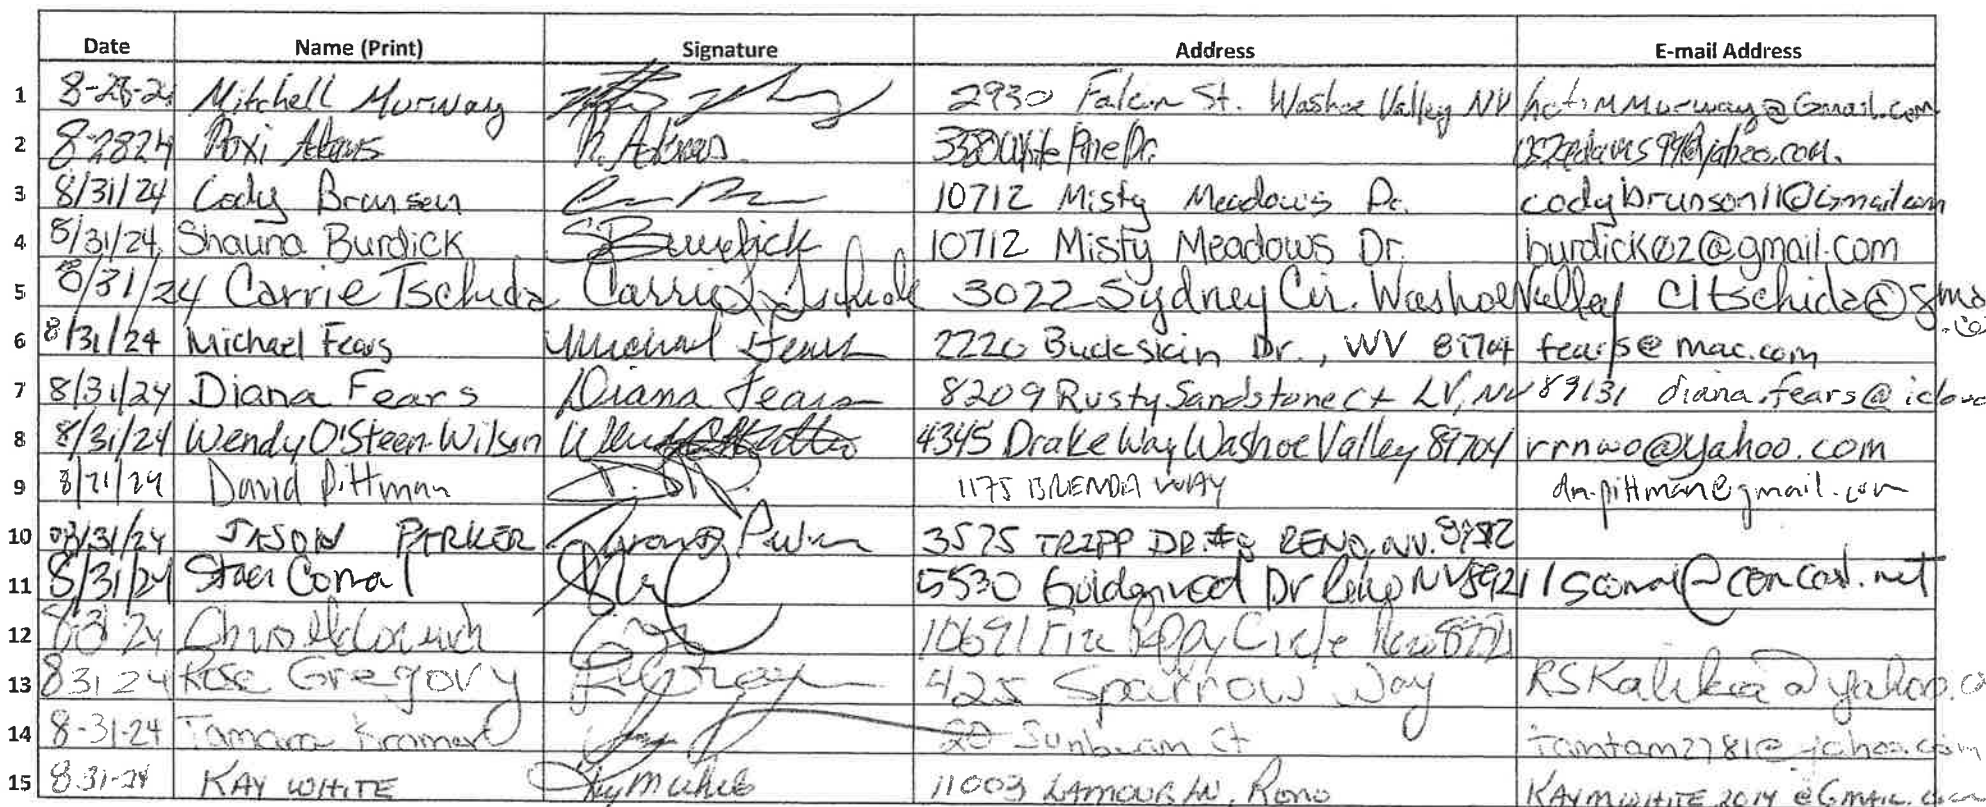 Date Name (Print) Signature Address E-mail Address
1 8-28-24 Mitchell Murway 2930 Falcon St. Washoe Valley NV hotimMurway@Gmail.com
2 8-2824 Roxi Adams R. Adams 3380 White Pine Dr.
3 8/31/24 Cody Brunson 10712 Misty Meadows Dr. codybrunson11@Gmail.com
4 8/31/24 Shauna Burdick SBurdick 10712 Misty Meadows Dr. burdick02@gmail.com
5 8/31/24 Carrie Tschida Carrie Tschida 3022 Sydney Cir. Washoe Valley cltschida@gma
6 8/31/24 Michael Fears Michael Fears 2220 Buckskin Dr., WV 89704 fears@mac.com
7 8/31/24 Diana Fears Diana Fears 8209 Rusty Sandstone Ct LV, NV 89131 diana.fears@iclou
8 8/31/24 Wendy O'Steen-Wilson 4345 Drake Way Washoe Valley 89704 rrnwo@yahoo.com
9 David Pittman 1175 BRENDA WAY dn.pittman@gmail.com
10 08/31/24 JASON PARKER 3575 TRIPP DR. RENO, NV. 89512
11 8/31/24 Staci Corral 5530 Goldenrod Dr Reno NV
12 8 31 24 10691 Fire Poppy Circle Reno
13 8 31 24 Rose Gregory 425 Sparrow Way
14 8-31-24 Tamara 20 Sunbeam Ct Tamtam2781@yahoo.com
15 8-31-24 KAY WHITE 11003 LAMOUR LN, Reno KAYMWHITE2014@GMAIL.com